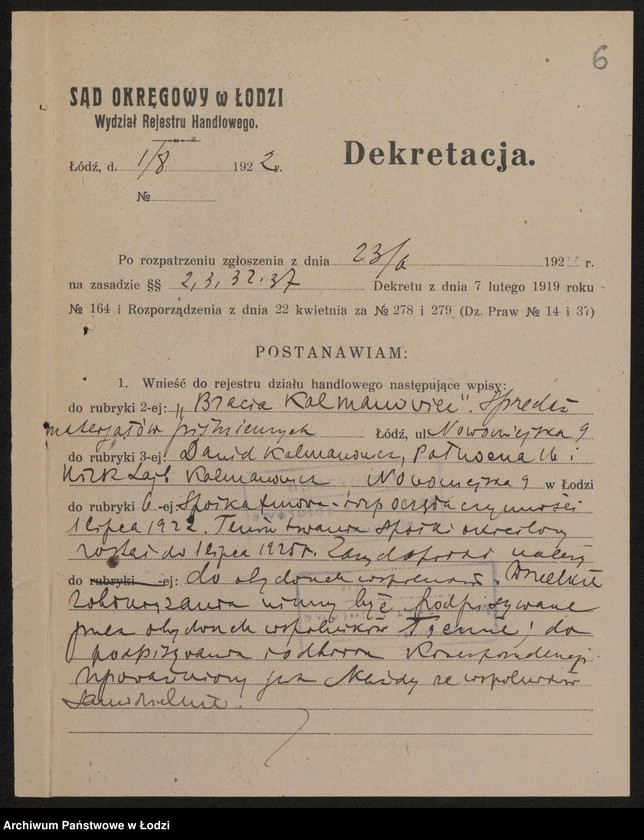 6
SĄD OKRĘGOWY w ŁODZI
Wydział Rejestru Handlowego.
Łódź, d. 1/8 1922 r.
№
Dekretacja.
Po rozpatrzeniu zgłoszenia z dnia 23/6 192 r.
na zasadzie §§ 2, 3, 32-37 Dekretu z dnia 7 lutego 1919 roku
№ 164 i Rozporządzenia z dnia 22 kwietnia za № 278 i 279 (Dz. Praw № 14 i 37)
POSTANAWIAM:
1. Wnieść do rejestru działu handlowego następujące wpisy:
do rubryki 2-ej: „Bracia Kalmanowicz". Sprzedaż
materjałów piśmiennych Łódź, ul. Nowomiejska 9
do rubryki 3-ej: Dawid Kalmanowicz, Północna 16 i
Kalmanowicz Nowomiejska 9 w Łodzi
do rubryki 6-ej: Spółka firmowa rozpoczęła czynności
1 lipca 1922. Termin trwania spółki określony
został do 1 lipca 1925 r. Zarząd spółki należy
do rubryki -ej: do obydwuch wspólników. Wszelkie
zobowiązania winny być podpisywane
przez obydwuch wspólników łącznie; do
podpisywania i odbioru korespondencji
upoważniony jest każdy ze wspólników
samodzielnie.
Archiwum Państwowe w Łodzi